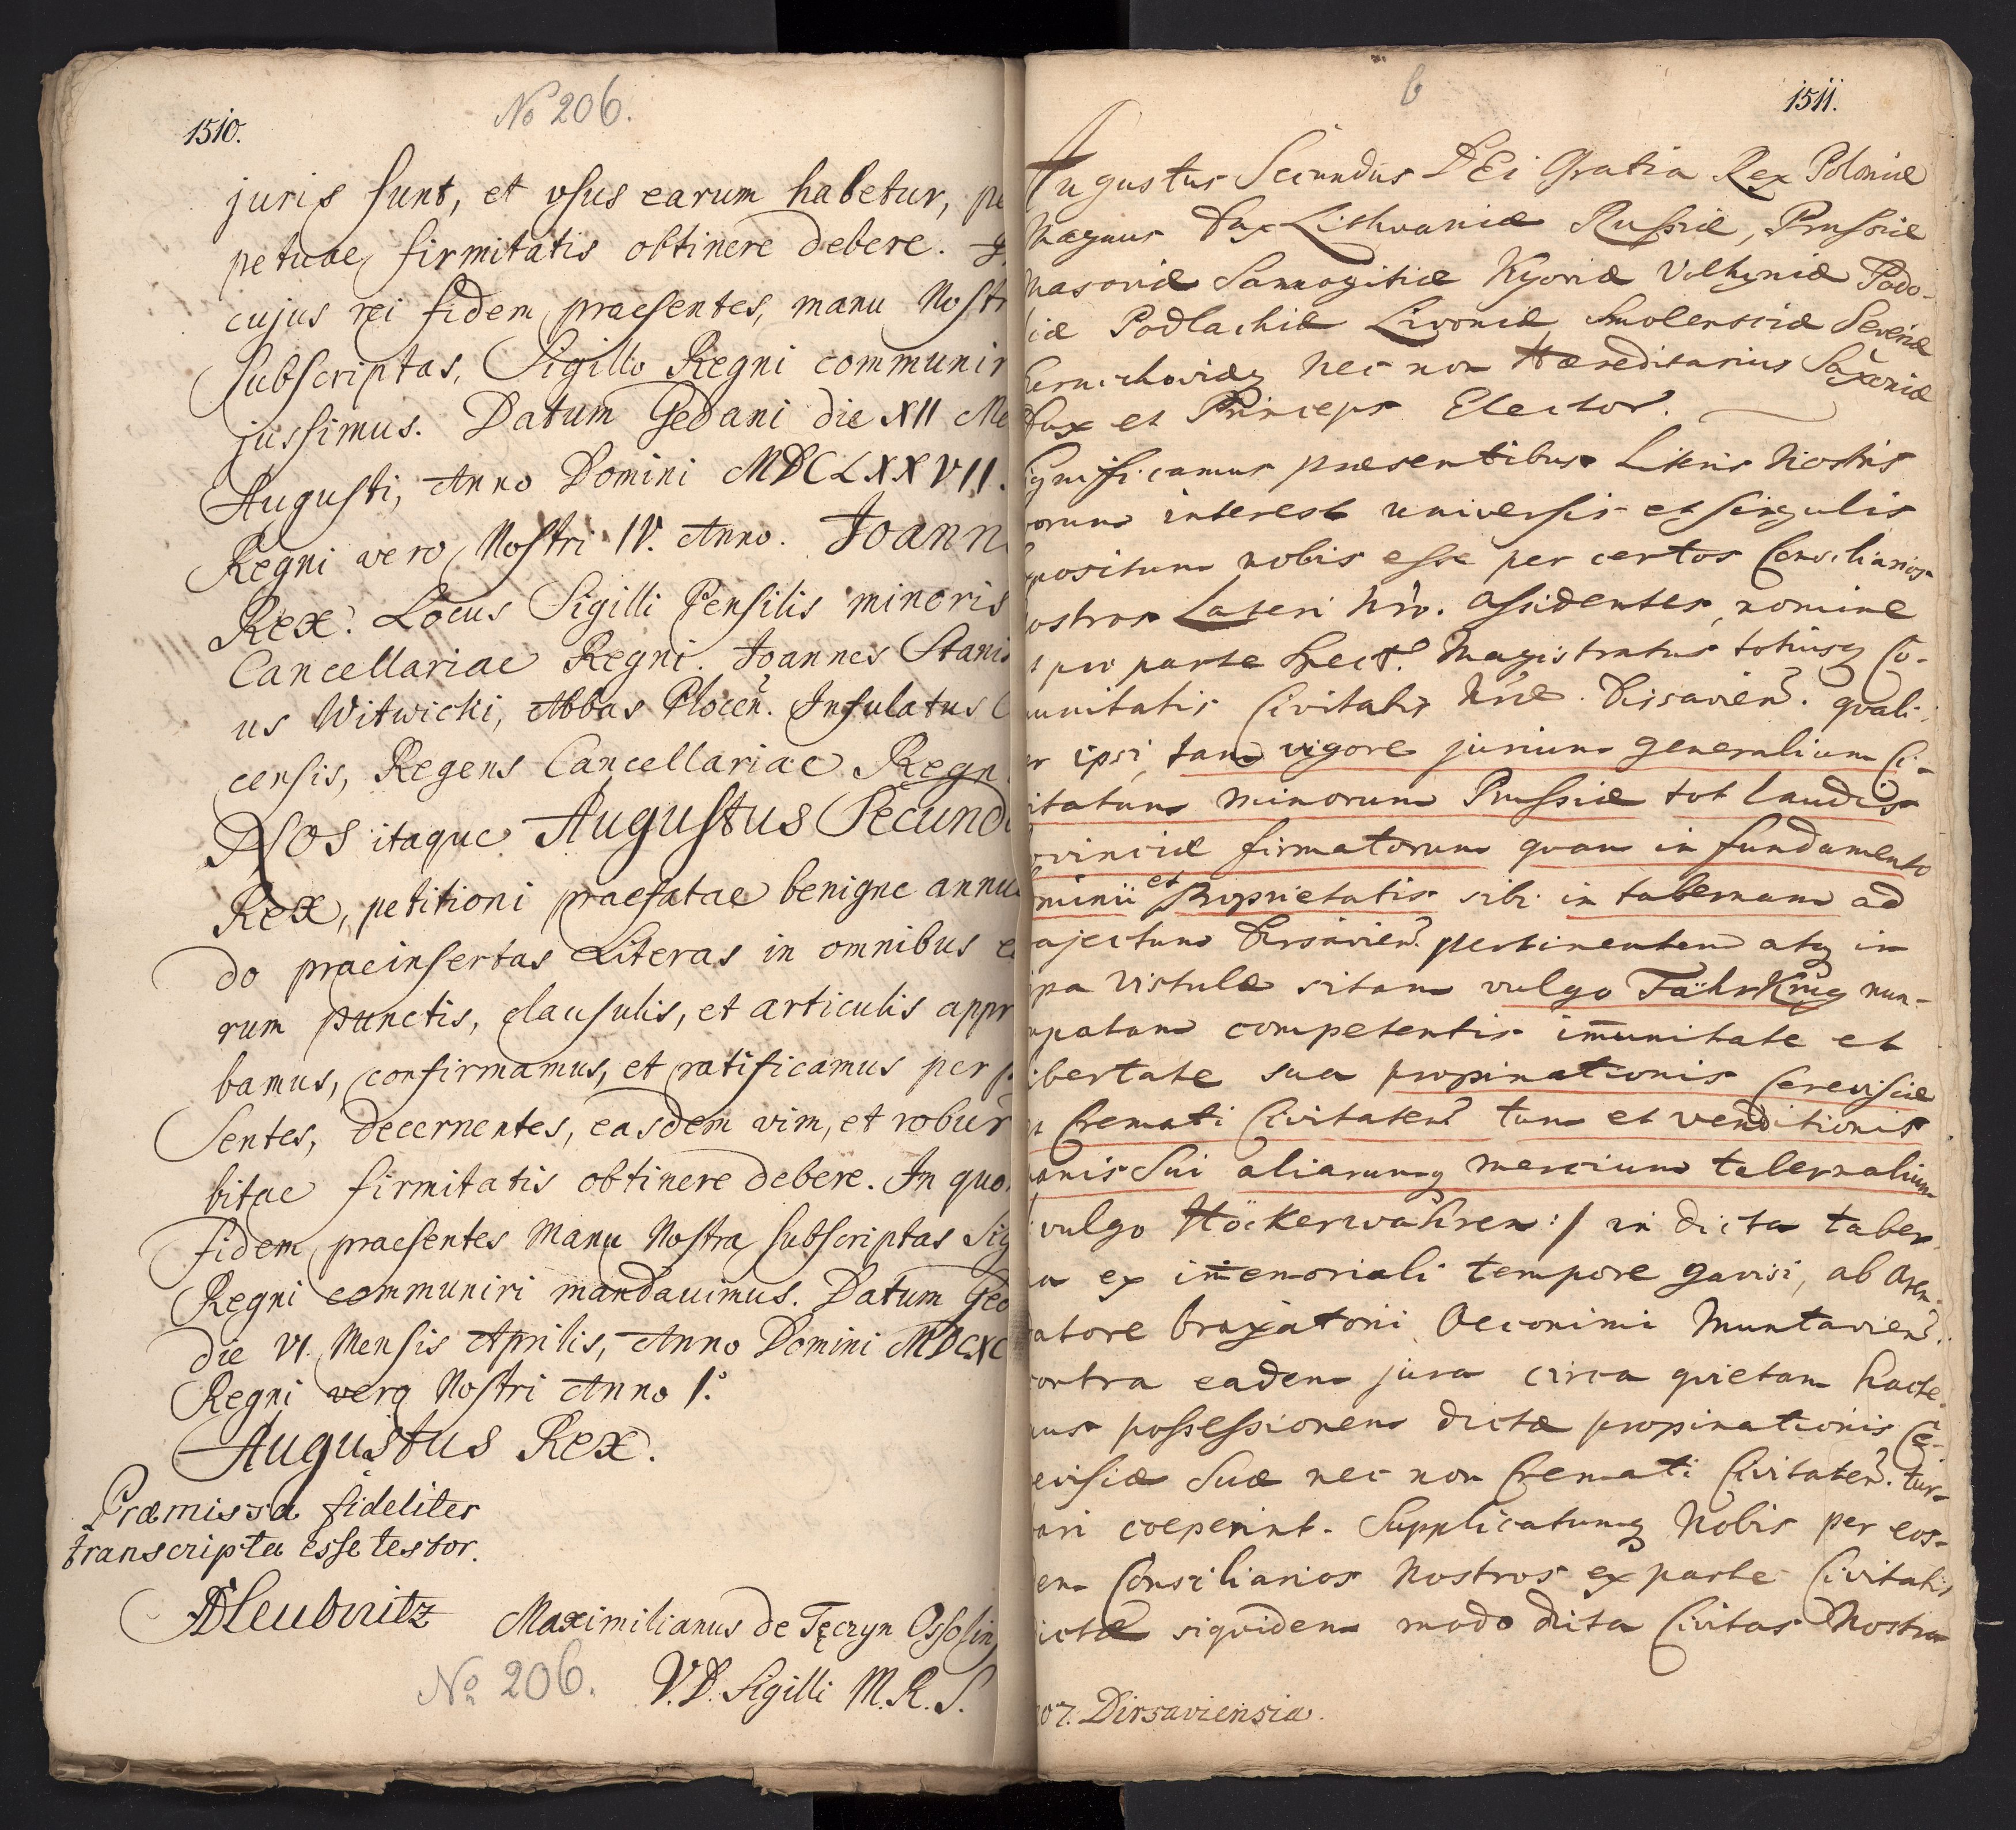 1510.
No 206.
juris sunt, et usus earum habetur, pe
petuae firmitatis obtinere debere. I
cujus rei fidem praesentes, manu Nostr
subscriptas, Sigillo Regni communir
jussimus. Datum Gedani die XII Me
Augusti, Anno Domini MDCLXXVII.
Regni vero Nostri IV. Anno. Joann
Rex. Locus Sigilli Pensilis minoris
Cancellariae Regni. Joannes Stanis
us Witwicki, Abbas Plocen. Insulatus C
censis, Regens Cancellariae Regn
NOS itaque Augustus Secund
Rex, petitioni praefatae benigne annu
do praeinsertas Literas in omnibus e
rum punctis, clausulis, et articulis appr
bamus, confirmamus, et ratificamus per p
sentes, decernentes, easdem vim, et robur
bitae firmitatis obtinere debere. In quo
fidem praesentes Manu Nostra subscriptas Sig
Regni communiri mandavimus. Datum Ged
die VI. Mensis Aprilis, Anno Domini MDCXC
Regni vero Nostri Anno 1.
Augustus Rex.
Præmissa fideliter
transcripta esse testor.
Maximilianus de Tęczyn Ossolin
V.D. Sigilli M.R.S.
No 206.
6
1511.
Augustus Secundus DEi Gratia Rex Poloniæ
Magnus Dux Lithvaniæ Russiæ, Prussiæ
Masoviæ Samogitiæ Kyoviæ Volhyniæ Podo-
iæ Podlachiæ Livoniæ Smolensciæ Severiæ
zernichoviæq nec non Hæreditarius Saxoniæ
Dux et Princeps Elector.
ignificamus præsentibus Literis Nostris
orum interest universis et singulis
positum nobis esse per certos Consiliarios
ostros Lateri Nro. assidentes, nomine
t pro parte Spect. Magistratus totiusq Co-
unitatis Civitatis Nræ. Dirsavien. quali-
r ipsi, tam vigore jurium generalium Ci-
itatum minorum Prussiæ tot laudis
ovinciæ firmatorum quam in fundamento
minii et Proprietatis sibi in tabernam ad
ajectum Dirsavien. pertinentem atq in
ipa Vistulæ sitam vulgo FährKrug nun-
upatam competentis imunitate et
ibertate sua propinationis Cerevisiæ
t Cremati Civitaten tum et venditionis
anis Sui aliarumq mercium tabernalium
vulgo Höckerwahren :/ in dicta taber-
a ex imemoriali tempore gavisi, ab Aren-
atore braxatorii Oeconimi Muntavien.
ontra eadem jura circa quietam hacte-
nus possessionem dictæ propinationis Ce-
evisiæ Suæ nec non Cremati Civitaten. tur-
ari coeperint. Supplicatumq Nobis per eos-
em Consiliarios Nostros ex parte Civitatis
ictæ siquidem modo dicta Civitas Nostra
07. Dirsaviensia.